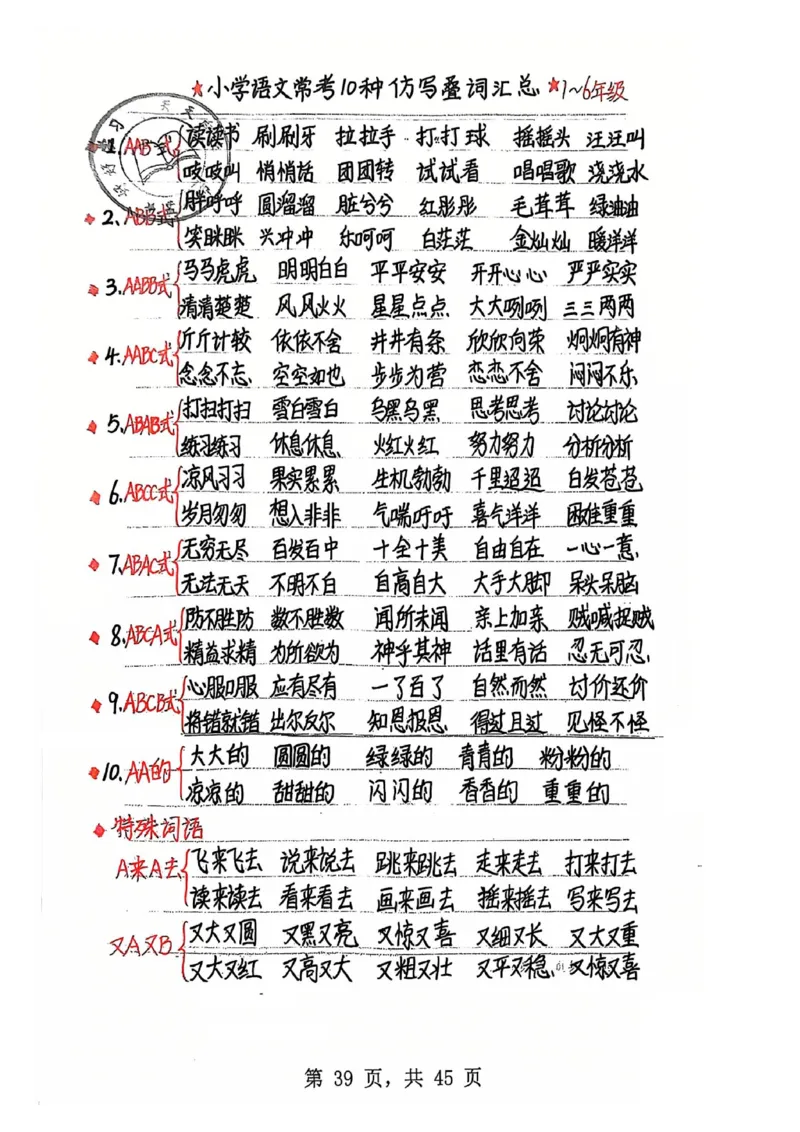 ★小学语文常考10种仿写叠词汇总★1~6年级
1.AAB式
读读书 刷刷牙 拉拉手 打打球 摇摇头 汪汪叫
吱吱叫 悄悄话 团团转 试试看 唱唱歌 浇浇水
2.ABB式
胖呼呼 圆溜溜 脏兮兮 红彤彤 毛茸茸 绿油油
笑眯眯 兴冲冲 乐呵呵 白茫茫 金灿灿 暖洋洋
3.AABB式
马马虎虎 明明白白 平平安安 开开心心 严严实实
清清楚楚 风风火火 星星点点 大大咧咧 三三两两
4.AABC式
斤斤计较 依依不舍 井井有条 欣欣向荣 炯炯有神
念念不忘 空空如也 步步为营 恋恋不舍 闷闷不乐
5.ABAB式
打扫打扫 雪白雪白 乌黑乌黑 思考思考 讨论讨论
练习练习 休息休息 火红火红 努力努力 分析分析
6.ABCC式
凉风习习 果实累累 生机勃勃 千里迢迢 白发苍苍
岁月匆匆 想入非非 气喘吁吁 喜气洋洋 困难重重
7.ABAC式
无穷无尽 百发百中 十全十美 自由自在 一心一意
无法无天 不明不白 自高自大 大手大脚 呆头呆脑
8.ABCA式
防不胜防 数不胜数 闻所未闻 亲上加亲 贼喊捉贼
精益求精 为所欲为 神乎其神 话里有话 忍无可忍
9.ABCB式
心服口服 应有尽有 一了百了 自然而然 讨价还价
将错就错 出尔反尔 知恩报恩 得过且过 见怪不怪
10.AA的
大大的 圆圆的 绿绿的 青青的 粉粉的
凉凉的 甜甜的 闪闪的 香香的 重重的
特殊词语
A来A去
飞来飞去 说来说去 跳来跳去 走来走去 打来打去
读来读去 看来看去 画来画去 摇来摇去 写来写去
又A又B
又大又圆 又黑又亮 又惊又喜 又细又长 又大又重
又大又红 又高又大 又粗又壮 又平又稳 又惊又喜
第 39 页，共 45 页